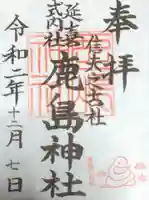 奉拝
信夫之古社
延喜
式内社
鹿島神社
令和二年十二月七日